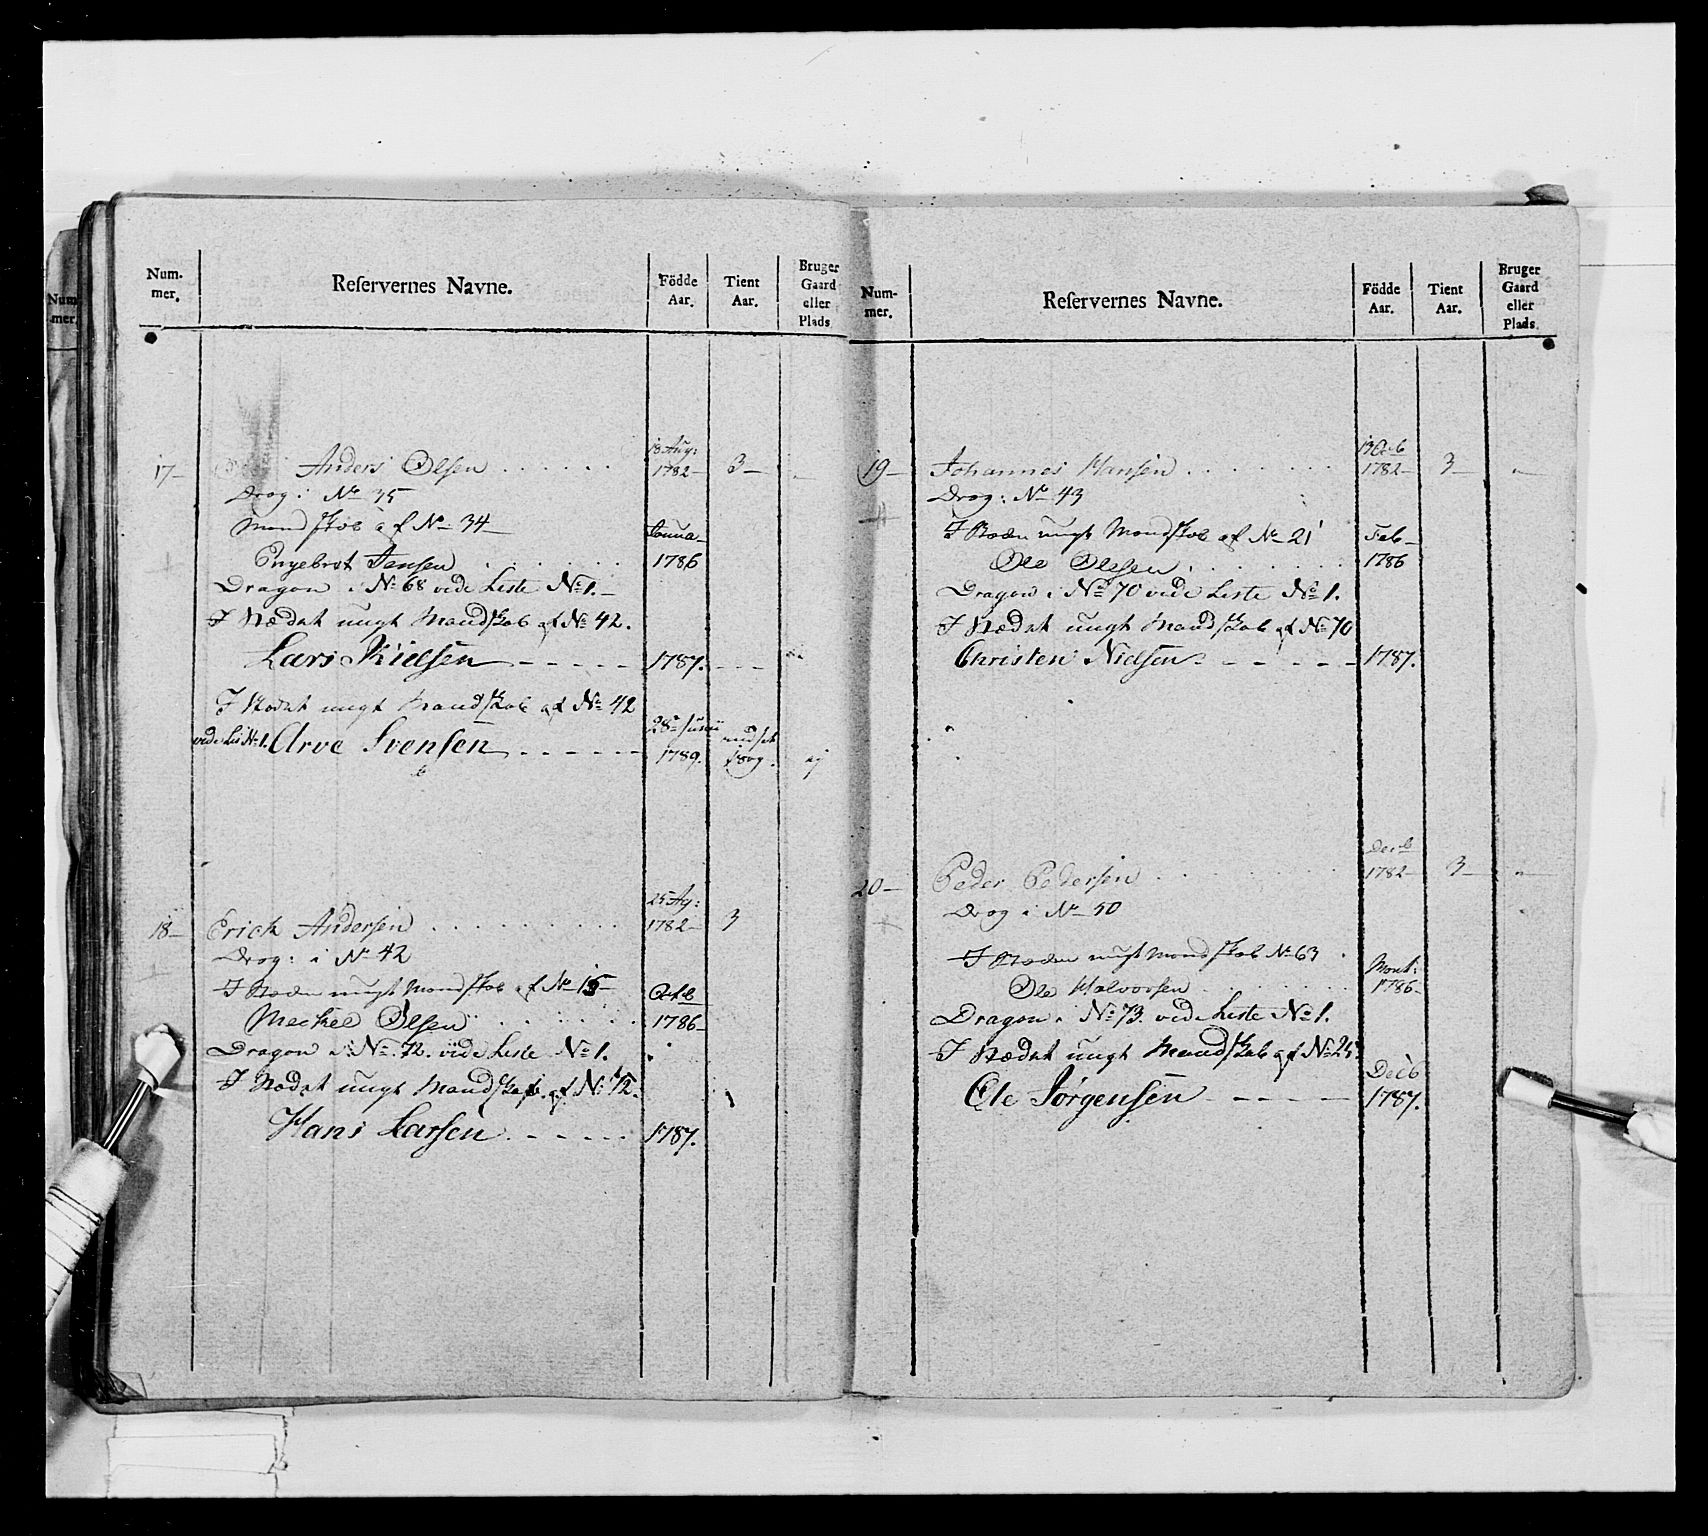 Num-
mer.
Reservernes Navne.
Födde
Aar.
Tient
Aar.
Bruger
Gaard
eller
Plads
17-
Anders Olsen
18 Aug:
1782-
3-
Drog: i No 35
Mandskab af No 34
Ingebret Jensen
Janua-
1786
Dragon i No 68 vide Liste No 1.
I Stædet ungt Mandskab af No 42.
Lars Nielsen
1787.
I Stædet ungt Mandskab af No 42
vide Lis No 1. Arve Svensen
28de Junii
1789.
udsat
18og.
ej
18-
Erich Andersen
25 Ag:
1782-
3
Drog: i No 42
I Stæden ungt Mandskab af No 15
Meckel Olsen
Octb
1786-
Dragon i No 72. vide Liste No 1.
I Stædet ungt Mandskab af No 72.
Hans Larsen
1787.
Num-
mer.
Reservernes Navne.
Födde
Aar.
Tient
Aar.
Bruger
Gaard
eller
Plads
19-
Johannes Hansen
1782-
3-
Drog: No 43
I Stæden ungt Mandskab af No 21
Ole Olesen
Feb-
1786
Dragon i No 70 vide Liste No 1.
I Stædet ungt Mandskab af No 70
Christen Nielsen
1787.
20-
Peder Pedersen
Decb
1782-
3-
Drog i No 50
I Stæden ungt Mandskab No 63
Ole Halvorsen
1786-
Dragon i No 73. vide Liste No 1.
I Stædet ungt Mandskab af No 25
Ole Jørgensen
Decb
1787.